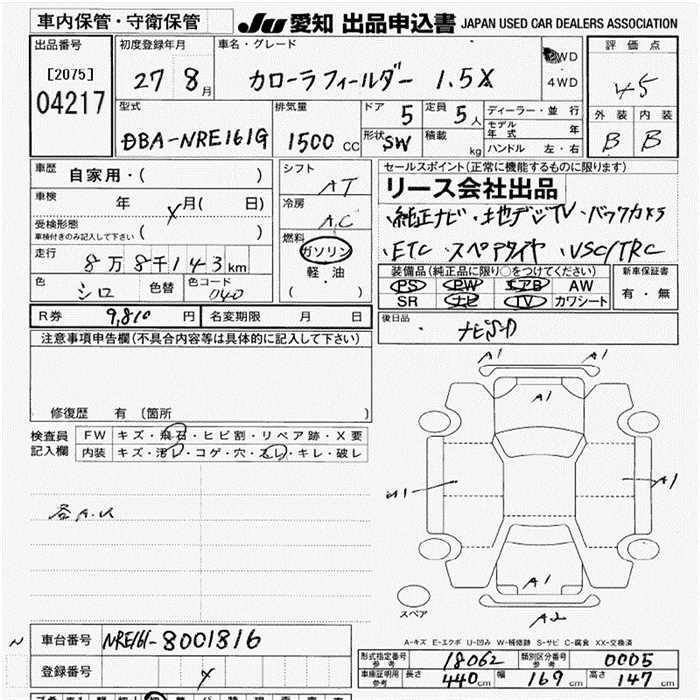 車内保管・守衛保管 JU 愛知 出品申込書 JAPAN USED CAR DEALERS ASSOCIATION
出品番号 初度登録年月 車名・グレード 評価点
[2075] 27 8月 カローラフィールダー 1.5X 2WD 4WD 45
04217
型式 排気量 ドア 5 定員 5人 ディーラー・並行 外装 内装
DBA-NRE161G 1500 CC 形状 SW 積載 kg モデル年式 年 B B
ハンドル 左・右
車歴 自家用・( ) シフト AT セールスポイント(正常に機能するものに限ります)
リース会社出品
車検 年 月( 日) 冷房 A.C ・純正ナビ・地デジTV・バックカメラ
受検形態 車検付きのみ記入して下さい ( )
燃料 ガソリン 軽油 ( ) ・ETC ・スペアタイヤ ・VSC/TRC
走行 8万8千143km
色 シロ 色替 色コード 040
装備品(純正品に限り○をつけてください) 新車保証書
PS PW エアB AW 有・無
SR ナビ TV カワシート
R券 9,810円 名変期限 月 日 後日品 ナビSD
注意事項申告欄(不具合内容等は具体的に記入して下さい)
修復歴 有 〔箇所 〕
検査員記入欄 FW キズ・飛石・ヒビ割・リペア跡・X要
内装 キズ・汚レ・コゲ・穴・スレ・キレ・破レ
A1 A1
A1
U1 A1
各A.U
A1
A2
スペア
A-キズ E-エクボ U-凹み W-補修跡 S-サビ C-腐食 XX-交換済
車台番号 NRE161-8001316
登録番号
形式指定番号 参考 18062 類別区分番号 参考 0005
車庫証明用 参考 長さ 440cm 幅 169cm 高さ 147cm